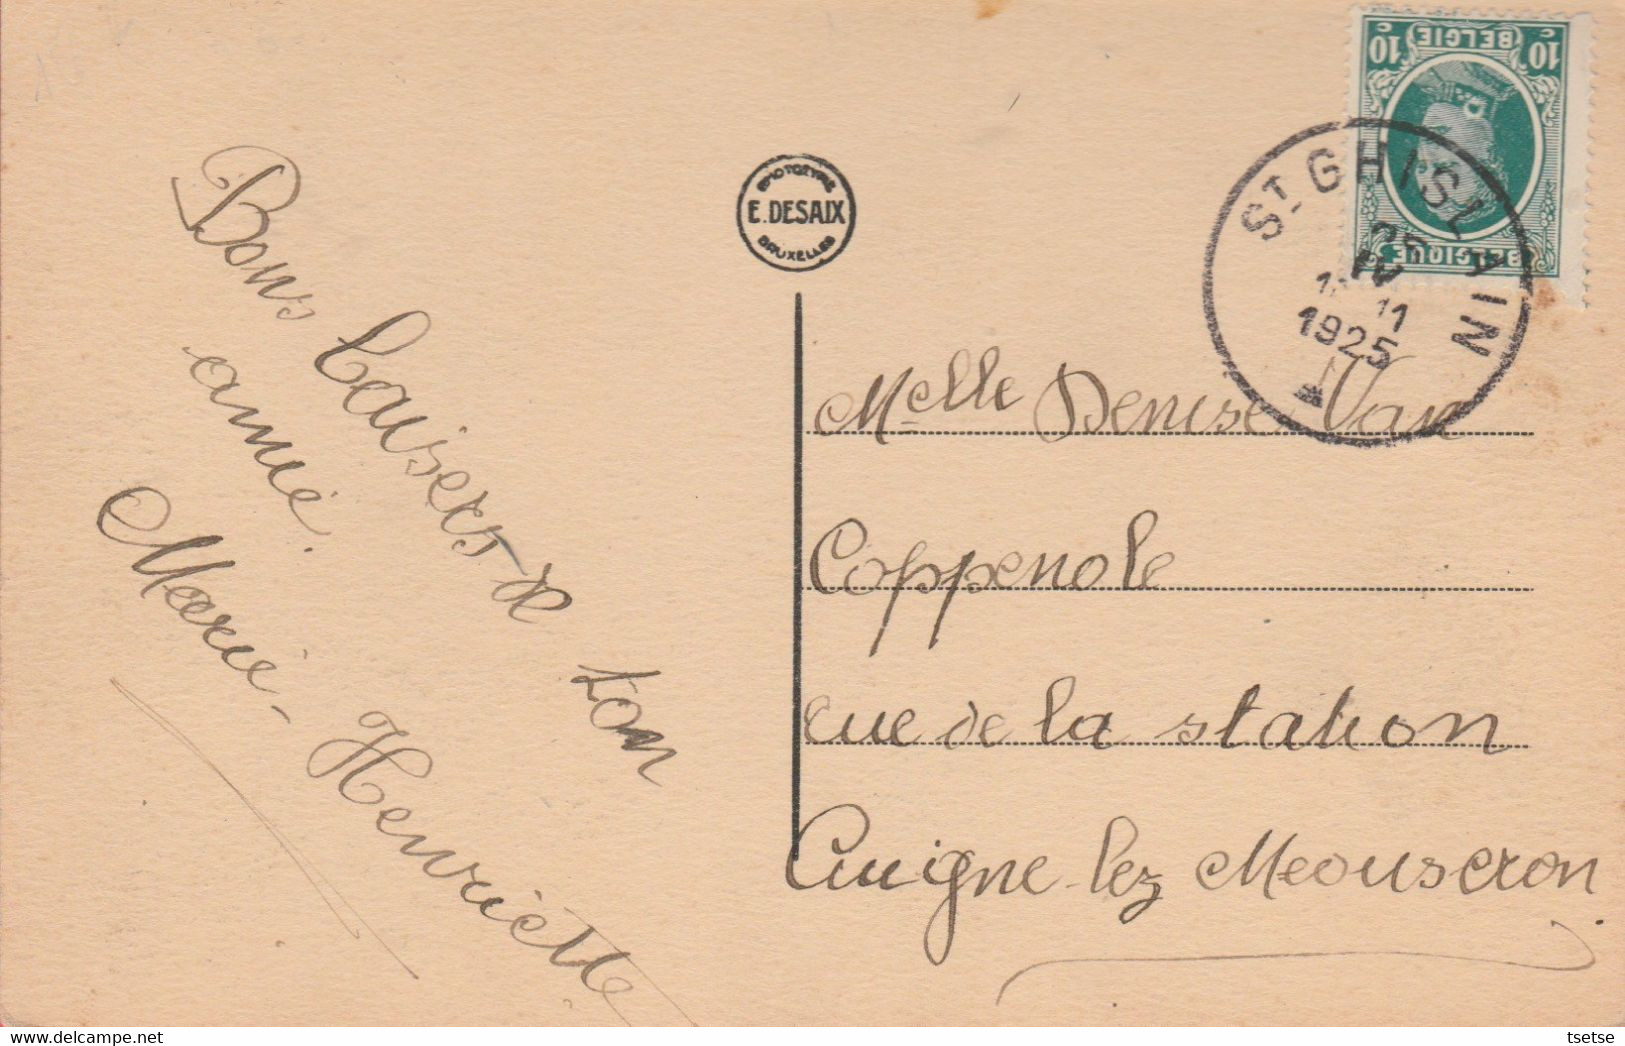 Bons baisers de ton
amie.
Marie-Henriette
PHOTOTYPIE
E. DESAIX
BRUXELLES
10 c BELGIE 10 c
BELGIQUE
ST GHISLAIN
11
1925
Melle Denise Van
Coppenole
rue de la station
Luigne-lez Meouscron
tsetse